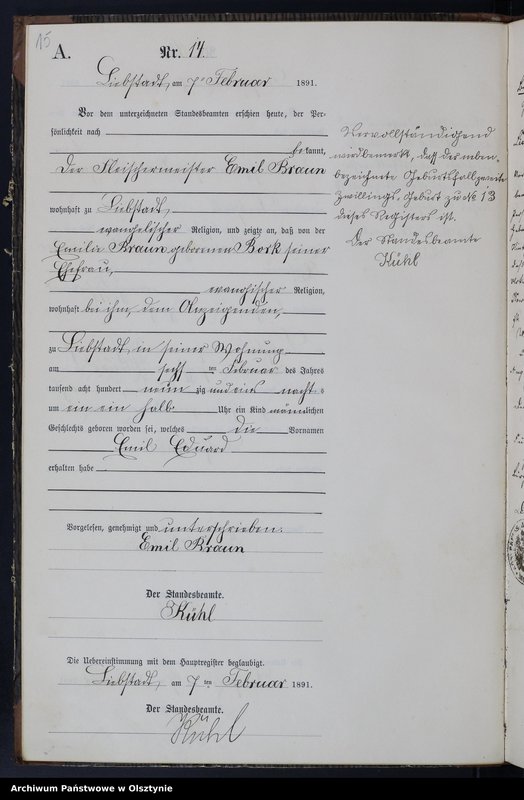 15
A.
Nr. 14.
Liebstadt, am 7ten Februar 1891.
Vor dem unterzeichneten Standesbeamten erschien heute, der Per-
sönlichkeit nach
bekannt,
der Fleischermeister Emil Braun
wohnhaft zu Liebstadt,
evangelischer Religion, und zeigte an, daß von der
Emilie Braun geborenen Bork seiner
Ehefrau,
evangelischer Religion,
wohnhaft bei ihm, dem Anzeigenden,
zu Liebstadt in seiner Wohnung
am sechs ten Februar des Jahres
tausend acht hundert neun zig und eins nacht s
um ein ein halb Uhr ein Kind männlichen
Geschlechts geboren worden sei, welches die Vornamen
Emil Eduard
erhalten habe
Vorgelesen, genehmigt und unterschrieben.
Emil Braun
Der Standesbeamte.
Kühl
Die Uebereinstimmung mit dem Hauptregister beglaubigt.
Liebstadt, am 7ten Februar 1891.
Der Standesbeamte.
Kühl
Vervollständigend
wird bemerkt, daß der neben-
bezeichnete Geburtsfall zweite
Zwillings-Geburt zu № 13
dieses Registers ist.
Der Standesbeamte
Kühl
Archiwum Państwowe w Olsztynie